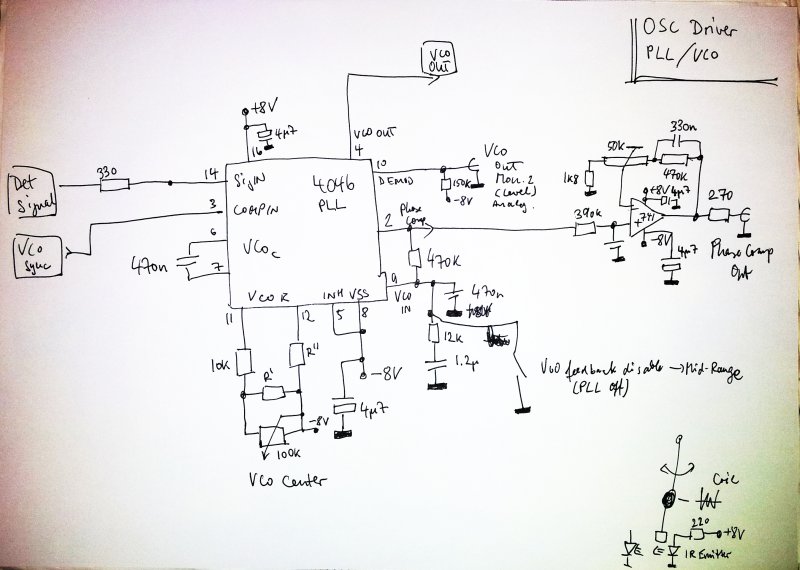 OSC Driver
PLL/VCO
VCO
OUT
+8V
4µ7
16
VCO OUT
4
Det
Signal
330
14
SigIN
4046
PLL
10
DEMOD
150k
-8V
VCO
Out
Mon. 2
(Level)
Analog.
3
COMPIN
VCO
Sync
6
VCOc
470n
7
2
Phase
Comp
470K
9
VCO
IN
470n
VCO R
INH VSS
11
12
5
8
10k
R"
R'
-8V
4µ7
-8V
100k
VCO Center
12k
1.2µ
VCO feedback disable → Mid-Range
(PLL off)
50k
330n
470k
1k8
+8V
4µ7
390k
741
270
-8V
4µ7
Phase Comp
Out
Coil
220
+8V
IR Emitter